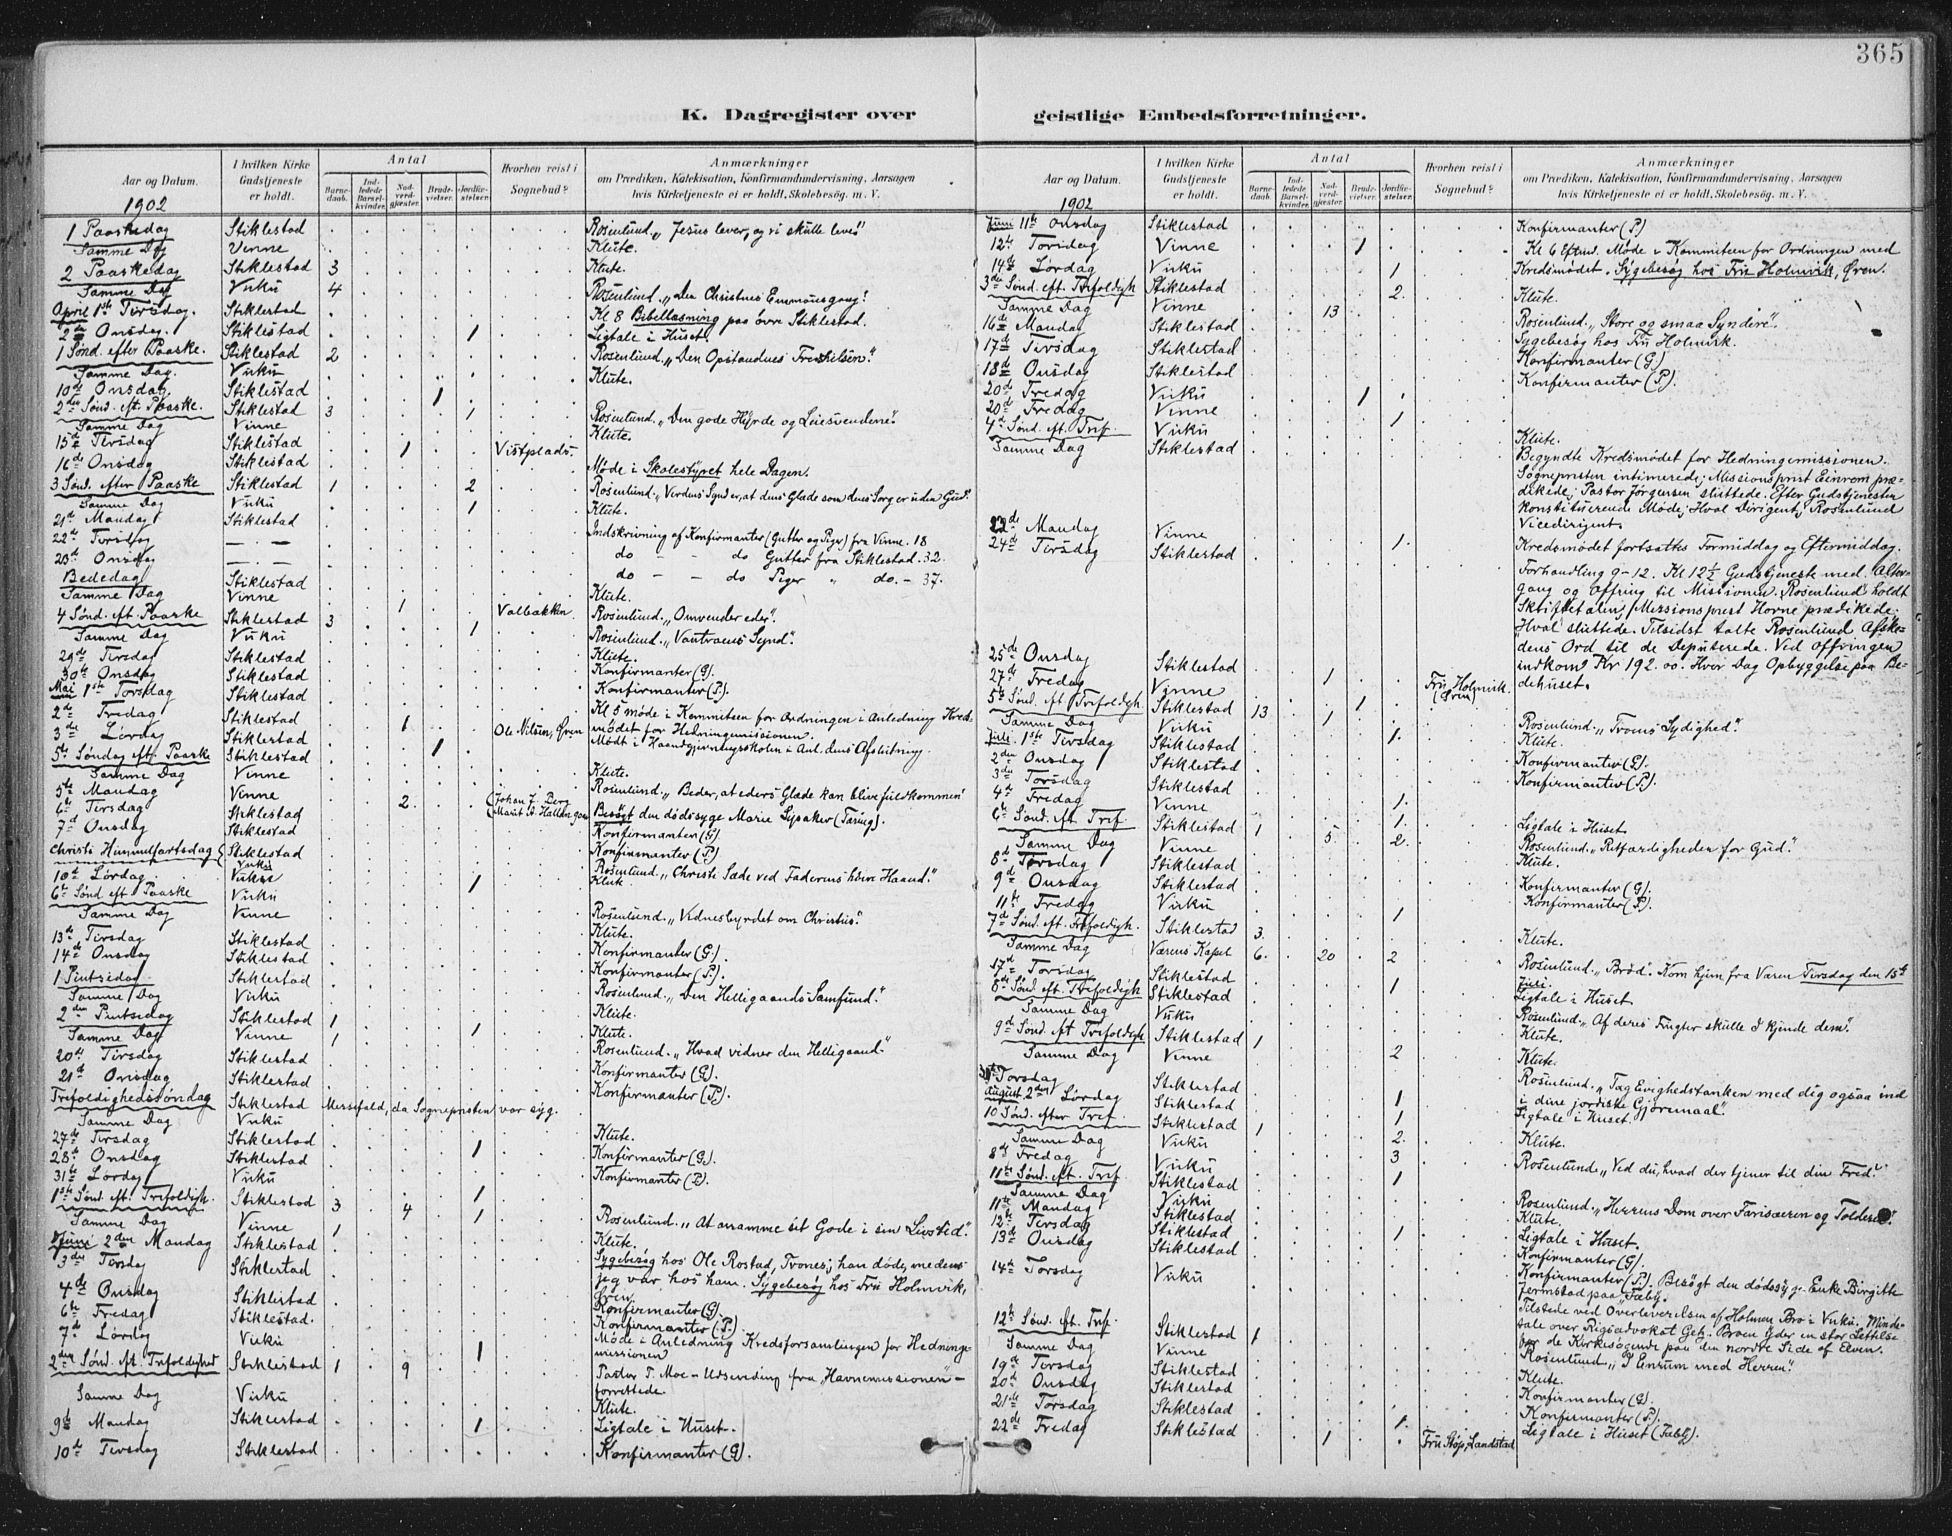 365
K. Dagregister over geistlige Embedsforretninger.
Aar og Datum.
1902
I hvilken Kirke Gudstjeneste er holdt.
Antal
Barnedaab.
Indledede Barselkvinder.
Nadverdgjæster.
Brudevielser.
Jordfæstelser.
Hvorhen reist i Sognebud?
Anmærkninger
om Prædiken, Katekisation, Konfirmandundervisning, Aarsagen
hvis Kirketjeneste ei er holdt, Skolebesøg. m. V.
1 Paaskedag Stiklestad Rosenlund. „Jesus lever, og vi skulle leve"
Samme Dag Vinne Klüte.
2 Paaskedag Stiklestad 3 Klüte.
Samme Dag Vuku 4 Rosenlund. „Den Christnes Emmausgang"
April 1ste Tirsdag. Stiklestad Kl 8 Bibellæsning paa övre Stiklestad.
2den Onsdag. Stiklestad 1 Ligtale i Huset.
1 Sønd. efter Paaske. Stiklestad 2 Rosenlund. „Den Opstandnes Fredhilsen"
Samme Dag. Vuku Klüte.
10de Onsdag Stiklestad 1
2den Sønd. eft. Paaske. Stiklestad 3 1 Rosenlund. „Den gode Hyrde og Leiesvendene"
Samme Dag Vinne Klüte.
15de Tirsdag Stiklestad 1
16de Onsdag Stiklestad Møde i Skolestyret hele Dagen.
3 Sønd. efter Paaske Stiklestad 1 2 Rosenlund.
Samme Dag Vuku 1 Klüte.
21de Mandag Stiklestad Indskrivning af Konfirmanter (Gutter og Piger) fra Vinne. 18
22de Tirsdag — . — do — - do Gutter fra Stiklestad. 32.
23de Onsdag — . — do — - do Piger „ do. - 37.
Bededag Stiklestad Klüte.
Samme Dag Vinne 1 Valbakken Rosenlund. „Omvender eder"
4 Sønd. eft. Paaske Stiklestad 3 Rosenlund. „Vantroens Synd"
Samme Dag Vuku 1 Klüte.
29de Tirsdag Stiklestad Konfirmanter (G).
30te Onsdag Stiklestad Konfirmanter (P).
Mai 1ste Torsdag Stiklestad
2den Fredag Stiklestad 1 Ole Nilsen, Øren Kl 5 møde i Kommiteen for Ordningen i Anledning Kredsmödet for Hedningemissionen.
3die Lördag Stiklestad
5te Søndag eft. Paaske Stiklestad 1
Samme Dag Vinne Klüte.
5te Mandag Vinne Rosenlund. „Beder, at eders Glæde kan blive fuldkommen"
6te Tirsdag Stiklestad 2 Johan J. Berg Besøgt den dödssyge Marie
7de Onsdag Stiklestad Konfirmanter (G)
Christi Himmelfartsdag Stiklestad Konfirmanter (P)
Vuku Rosenlund. „Christi Sæde ved Faderens höire Haand."
10de Lørdag Vuku Klüte
6te Sønd eft. Paaske Vuku 1
Samme Dag Vinne Rosenlund. „Vidnesbyrdet om Christus"
13de Tirsdag Stiklestad Klüte.
14de Onsdag Stiklestad Konfirmanter (G).
1 Pintsedag Stiklestad Konfirmanter (P).
Samme Dag Vuku Rosenlund. „Den Helligaands Samfund."
2den Pintsedag Stiklestad 1 Klüte.
Samme Dag Vinne 1 1 Klüte.
20de Tirsdag Stiklestad Rosenlund. „Hvad vidner den Helligaand"
21de Onsdag Stiklestad Konfirmanter (G).
Trefoldighedssøndag Stiklestad Messefald, da Sognepresten var syg. Konfirmanter (P).
Samme Dag Vuku
27de Tirsdag Stiklestad Klüte.
28de Onsdag Stiklestad 1 Konfirmanter (G).
31te Lørdag Vuku Konfirmanter (P).
1ste Sønd. eft. Trefoldigh. Stiklestad 3 4 1
Samme Dag Vinne 1 1 Rosenlund. „At anamme sit Gode i sin Livstid"
Juni 2den Mandag Stiklestad Klüte.
3die Tirsdag Stiklestad Sygebesøg hos Ole Rostad, han døde, medens jeg var hos ham. Sygebesøg hos Frü Holmvik, Øren.
4de Onsdag Stiklestad
6te Fredag Stiklestad. Konfirmanter (G)
7de Lördag Vuku 1 Konfirmanter (P).
Møde i Anledning Kredsforsamlingen for Hedningemissionen
2den Sønd. eft. Trefoldighed Stiklestad 1 9 Pastor T. Moe - Udsending fra „Havnemissionen" - forrettede.
Samme Dag Vuku Klüte.
9de Mandag Stiklestad 1 Ligtale i Huset.
10de Tirsdag Stiklestad Konfirmanter (G).
Aar og Datum.
1902
I hvilken Kirke Gudstjeneste er holdt.
Antal
Barnedaab.
Indledede Barselkvinder.
Nadverdgjæster.
Brudevielser.
Jordfæstelser.
Hvorhen reist i Sognebud?
Anmærkninger
om Prædiken, Katekisation, Konfirmandundervisning, Aarsagen
hvis Kirketjeneste ei er holdt, Skolebesøg. m. V.
Juni 11te Onsdag Stiklestad Konfirmanter (P)
12te Torsdag Vinne 1 Kl 6 Efterm. Møde i Kommiteen for Ordningen med
14de Lørdag Vuku 1 Kredsmødet. Sygebesøg hos Frü Holmvik, Øren.
3die Sønd. eft. Trefoldigh Stiklestad 2. Klüte.
Samme Dag Vinne 13 Rosenlund. „Store og smaa Syndere".
16de Mandag Stiklestad Sygebesøg hos Frü Holmvik.
17de Tirsdag Stiklestad Konfirmanter (G)
18de Onsdag Stiklestad Konfirmanter (P).
20de Fredag Vuku 1
20de Fredag Vinne 1
4de Sønd. eft. Tref. Vuku Klüte.
Samme Dag Stiklestad Begyndte Kredsmødet for Hedningemissionen.
Sognepresten intimerede; Missionsprest Einrem prædikede; Pastor Jørgensen sluttede. Efter Gudstjenesten
konstituerende Møde; Hval Dirigent, Rosenlund
Vicedirigent.
23de Mandag Vinne
24de Tirsdag Stiklestad 1. Kredsmødet fortsattes Formiddag og Eftermiddag.
Forhandling 9-12. Kl 12½ Gudstjeneste med Altergang og Offring til Missionen. Rosenlund holdt
Skriftetalen, Missionsprest Horne prædikede.
Hval sluttede. Tilsidst talte Rosenlund Afskedens Ord til de Deputerede. Ved Offringen
indkom Kr 192.00. Hver Dag Opbyggelse paa Bedehuset.
25de Onsdag Stiklestad
27de Fredag Vinne 1 Frü Holmvik. (Øren)
5te Sønd. eft Trefoldigh. Stiklestad 13 1
Samme Dag Vuku 1 Rosenlund. „Troens Lydighed".
Juli. 1ste Tirsdag Stiklestad 1. Klüte.
2den Onsdag Stiklestad Konfirmanter (G).
3die Torsdag Stiklestad Konfirmanter (P).
4de Fredag Vinne 1.
6te Sønd. eft Tref Stiklestad 1 1. Ligtale i Huset
Samme Dag Vinne 5 2. Rosenlund. „Retfærdigheden for Gud."
8de Tirsdag Stiklestad Klüte.
9de Onsdag Stiklestad Konfirmanter (G).
11te Fredag Vuku 1 Konfirmanter (P).
7de Sønd. eft. Trefoldigh. Stiklestad 3. Klüte.
Samme Dag Værens Kapel 6. 20 2 Rosenlund. „Brød". Kom hjem fra Væren Tirsdag den 15de Juli.
17de Torsdag Stiklestad 1 Ligtale i Huset
8de Sønd eft. Trefoldigh Stiklestad Rosenlund. „Af deres Frugter skulle I kjende dem".
Samme Dag Vuku Klüte.
9de Sønd. eft Trefoldigh Stiklestad 1 Klüte.
Samme Dag Vinne 2
31te Torsdag Stiklestad Rosenlund. „Tag Evighedstanken med dig ogsaa ind i dine jordiske Gjøremaal"
August 2den Lørdag Stiklestad 1 Ligtale i Huset.
10 Sønd. efter Tref. Stiklestad 1 1
Samme Dag Vuku 2. Klüte.
8de Fredag Vuku 3 Rosenlund. „Ved du, hvad der tjener til din Fred"
11te Sønd. eft. Tref Stiklestad 1
Samme Dag Vuku Rosenlund. „Herrens Dom over Farisæeren og Tolderen"
11te Mandag Stiklestad Klüte.
12te Tirsdag Stiklestad 1 Ligtale i Huset.
13de Onsdag Stiklestad Konfirmanter (G).
14de Torsdag Vuku Konfirmanter (P). Besøgt den dødssyge Enke Birgitte
Jermstad paa Faeby.
Tilstede ved Overleverelsen af Holmen Bro i Vuku. Mindetale over Rigsadvokat Getz. Broen yder en stor Lettelse
for de Kirkesøgende paa den nordre Side af Elven.
12te Sønd. eft. Tref. Stiklestad 1
Samme Dag Vinne Rosenlund. „I Enrum med Herren"
19de Tirsdag Stiklestad Klüte.
20de Onsdag Stiklestad Konfirmanter (G).
21de Torsdag Stiklestad Konfirmanter (P).
22de Fredag Stiklestad 1 1. Frü Støp, Landstad Ligtale i Huset